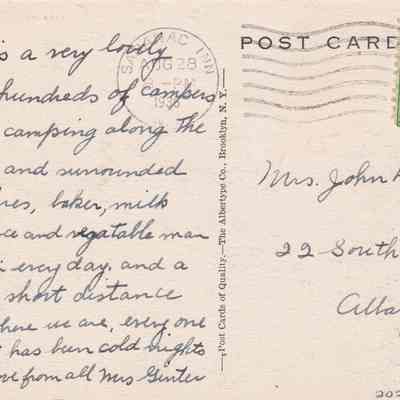 is a very lovely
hundreds of campers
camping along the
and surrounded
baker, milk
ice and vegatable man
every day. and a
short distance
where we are, every one
has been cold nights
love from all Mrs Ginter
AUG 28
PM
1938
POST CARD
Post Cards of Quality.—The Albertype Co., Brooklyn, N. Y.
Mrs. John
22 South
Alba
202